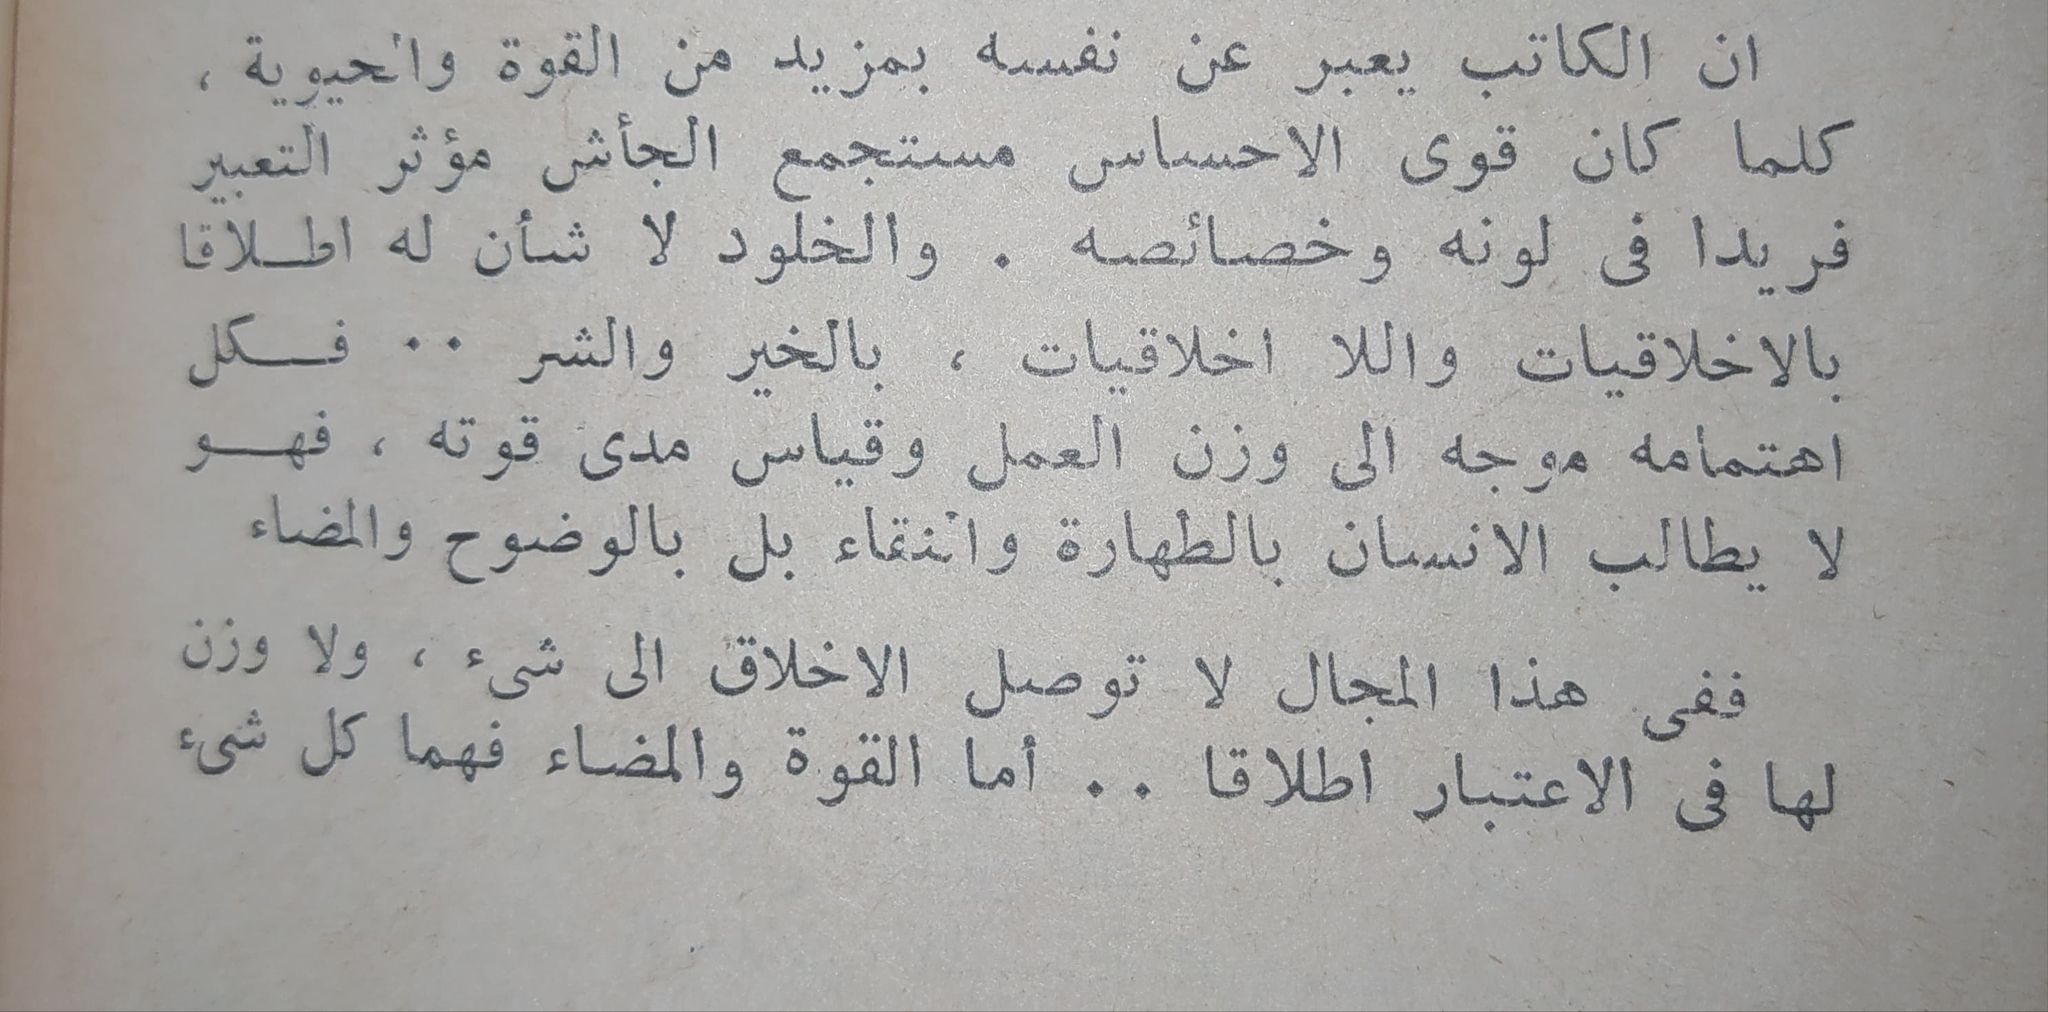 ان الكاتب يعبر عن نفسه بمزيد من القوة والحيوية ،
كلما كان قوى الاحساس مستجمع الجأش مؤثر التعبير
فريدا فى لونه وخصائصه . والخلود لا شأن له اطلاقا
بالاخلاقيات واللا اخلاقيات ، بالخير والشر ٠٠ فكل
اهتمامه موجه الى وزن العمل وقياس مدى قوته ، فهو
لا يطالب الانسان بالطهارة والنقاء بل بالوضوح والمضاء
ففى هذا المجال لا توصل الاخلاق الى شىء ، ولا وزن
لها فى الاعتبار اطلاقا ٠٠ أما القوة والمضاء فهما كل شىء